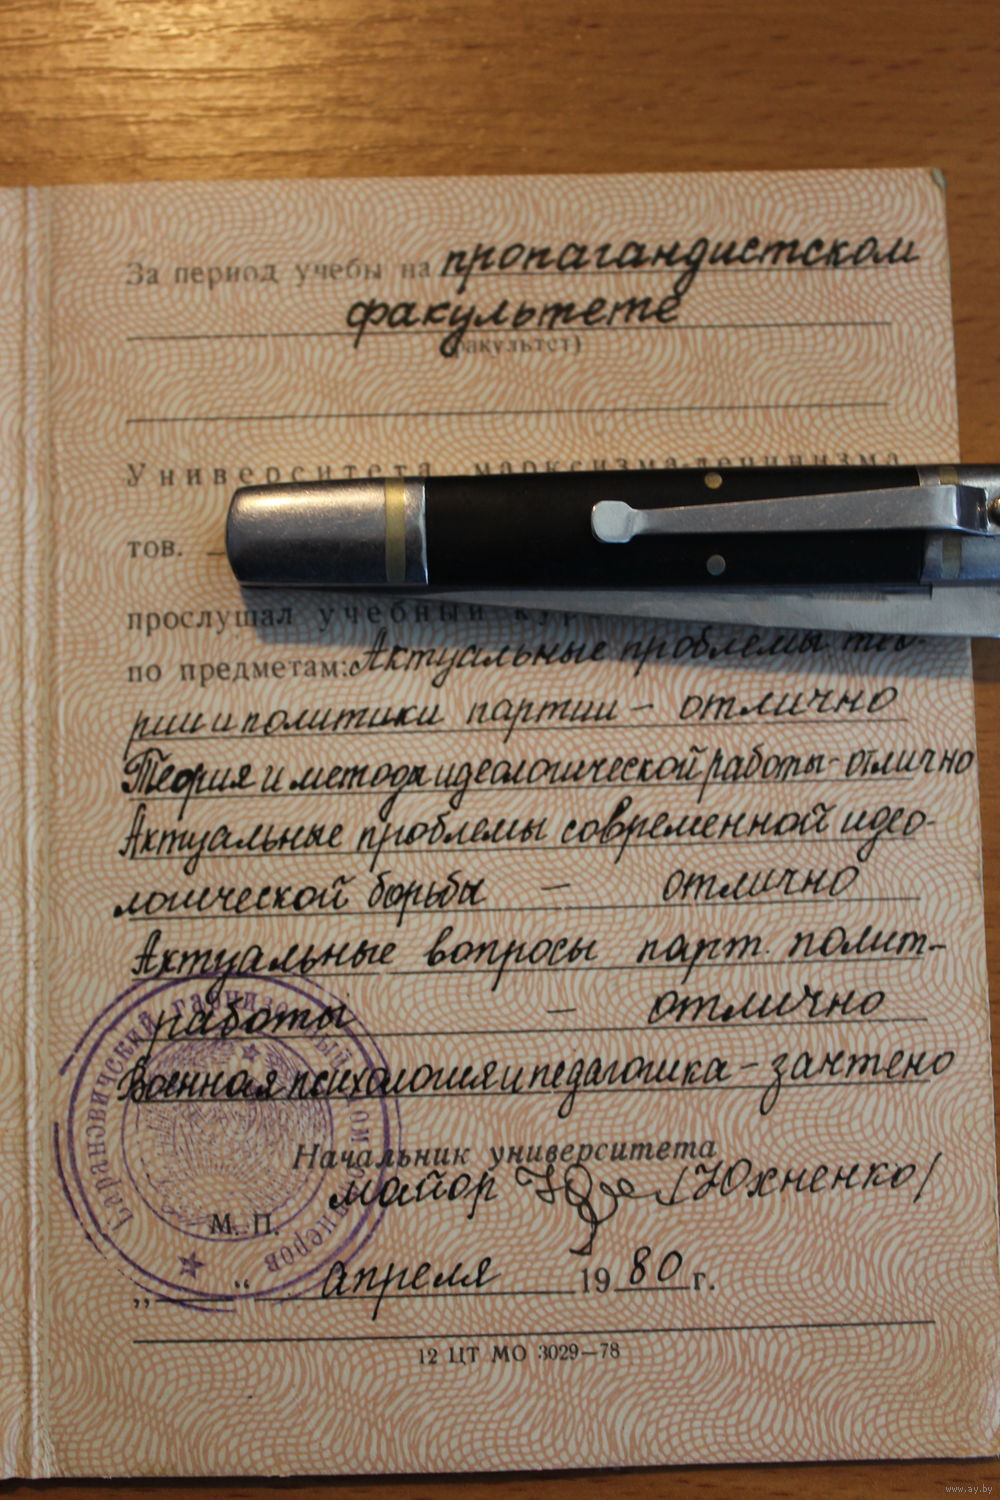 За период учебы на пропагандистском
факультете
(факультет)
Университета марксизма-ленинизма
тов.
прослушал учебный кур
по предметам: Актуальные проблемы тео-
рии и политики партии — отлично
Теория и метода идеологической работы - отлично
Актуальные проблемы современной идео-
логической борьбы — отлично
Актуальные вопросы парт. полит-
работы — отлично
Военная психология и педагогика - зачтено
Начальник университета
майор /Юхненко/
М. П.
„ “ апреля 1980 г.
12 ЦТ МО 3029—78
Барановический гарнизонный дом
офицеров
www.ay.by